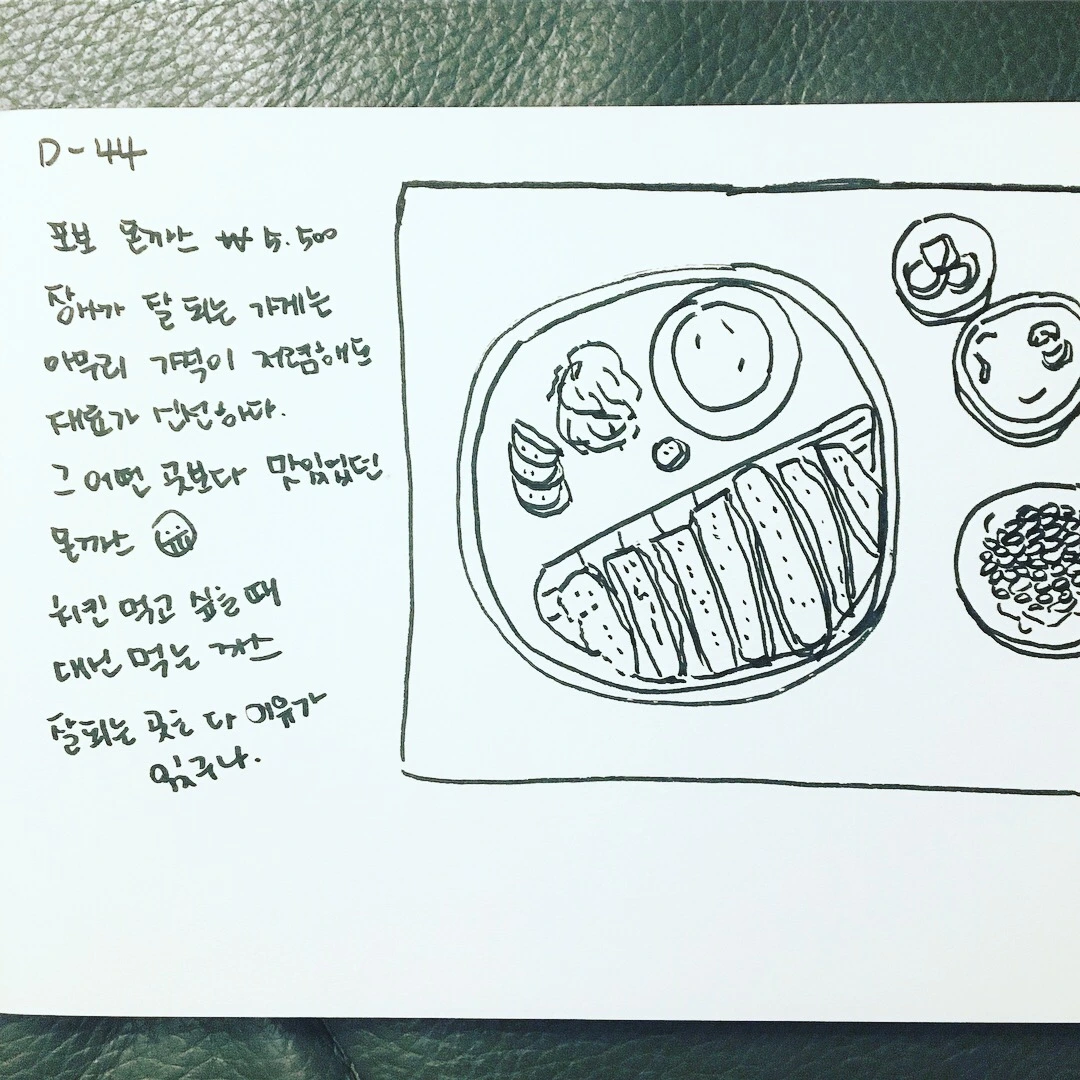 D-44
포보 돈까스 ₩ 5.500
장사가 잘 되는 가게는
아무리 가격이 저렴해도
재료가 신선하다.
그 어떤 곳보다 맛있었던
돈까스
치킨 먹고 싶을 때
대신 먹는 까스
잘되는 곳은 다 이유가
있구나.